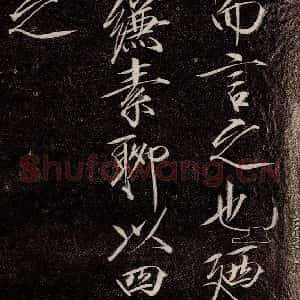 而言之也廼
縑素聊以四
之
Shufawang.CN